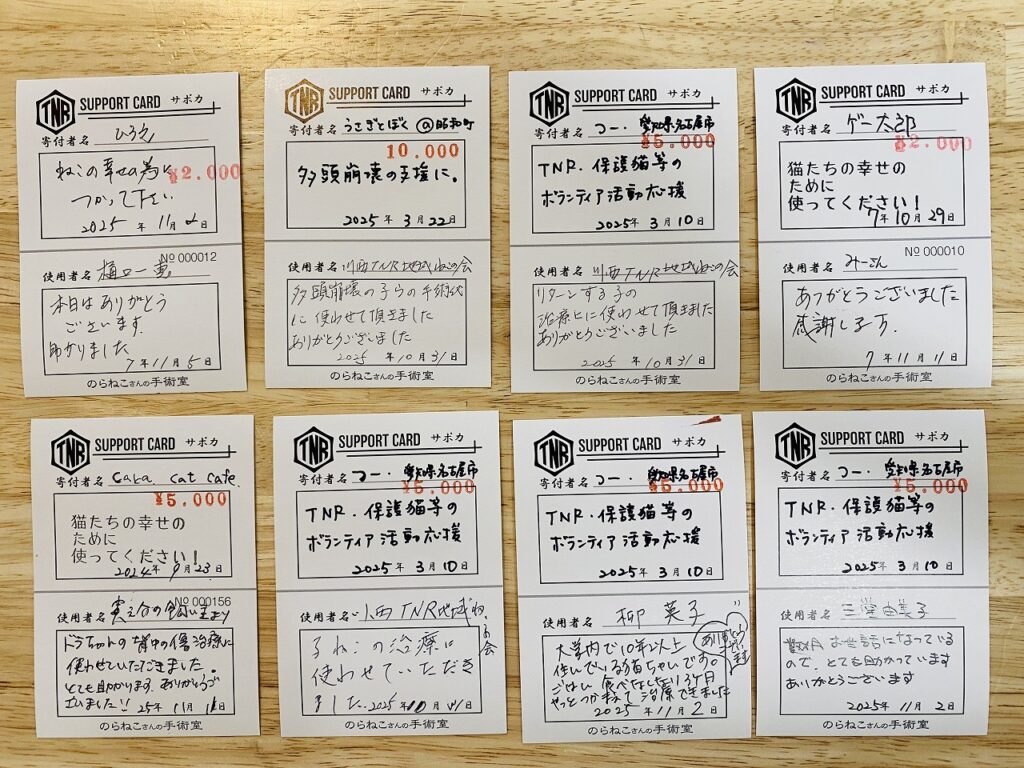 TNR SUPPORT CARD サポカ
寄付者名 ひろえ
ねこの幸せの為に
¥2,000
つかって下さい
2025年 11月 日
No 000012
使用者名 樋口一恵
本日はありがとう
ございます.
助かりました
7年11月5日
のらねこさんの手術室
TNR SUPPORT CARD サポカ
寄付者名 うさぎとぼく @昭和町
10,000
多頭崩壊の支援に。
2025年 3月 22日
使用者名 川西TNR地域ねこの会
多頭崩壊の子らの手術代
に使わせて頂きました
ありがとうございました
2025年10月31日
のらねこさんの手術室
TNR SUPPORT CARD サポカ
寄付者名 つー・愛知県名古屋市
¥5,000
TNR・保護猫等の
ボランティア活動応援
2025年 3月 10日
使用者名 川西TNR地域ねこの会
リターンする子の
治療ヒに使わせて頂きました
ありがとうございました
2025年10月31日
のらねこさんの手術室
TNR SUPPORT CARD サポカ
寄付者名 ゲー太郎
¥2,000
猫たちの幸せの
ために
使ってください!
7年10月29日
No 000010
使用者名 みーさん
ありがとうございました
感謝します.
7年11月1日
のらねこさんの手術室
TNR SUPPORT CARD サポカ
寄付者名 caka cat cafe.
¥5,000
猫たちの幸せの
ために
使ってください!
2024年9月23日
No 000156
使用者名
ドラちゃんの背中の傷治療に
使わせていただきました。
とても助かります。ありがとうご
ざいました!!
25年11月1日
のらねこさんの手術室
TNR SUPPORT CARD サポカ
寄付者名 つー・愛知県名古屋市
¥5,000
TNR・保護猫等の
ボランティア活動応援
2025年3月10日
使用者名 川西TNR地域ねこの会
子ねこの治療に
使わせていただき
ました. 2025年10月31日
のらねこさんの手術室
TNR SUPPORT CARD サポカ
寄付者名 つー・愛知県名古屋市
¥5,000
TNR・保護猫等の
ボランティア活動応援
2025年3月10日
使用者名 柳 英子
ありがとうございます
大学内で10年以上
住んでいる猫ちゃんです。
ごはん食べなしなり3ヶ月
やっとつかまえて治療できました
2025年11月2日
のらねこさんの手術室
TNR SUPPORT CARD サポカ
寄付者名 つー・愛知県名古屋市
¥5,000
TNR・保護猫等の
ボランティア活動応援
2025年3月10日
使用者名 三堂由美子
数月お世話になっている
ので、とても助かっています
ありがとうございます
2025年11月2日
のらねこさんの手術室